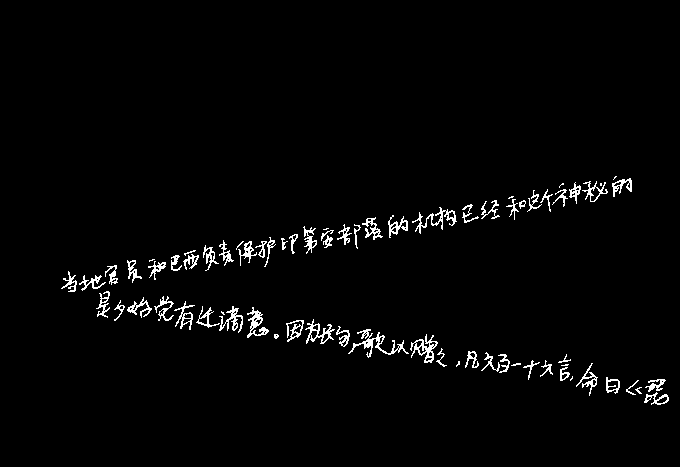 当地官员和巴西负责保护印第安部落的机构已经和这个神秘的
是夕始觉有迁谪意。因为长句,歌以赠之,凡六百一十六言,命曰《琵